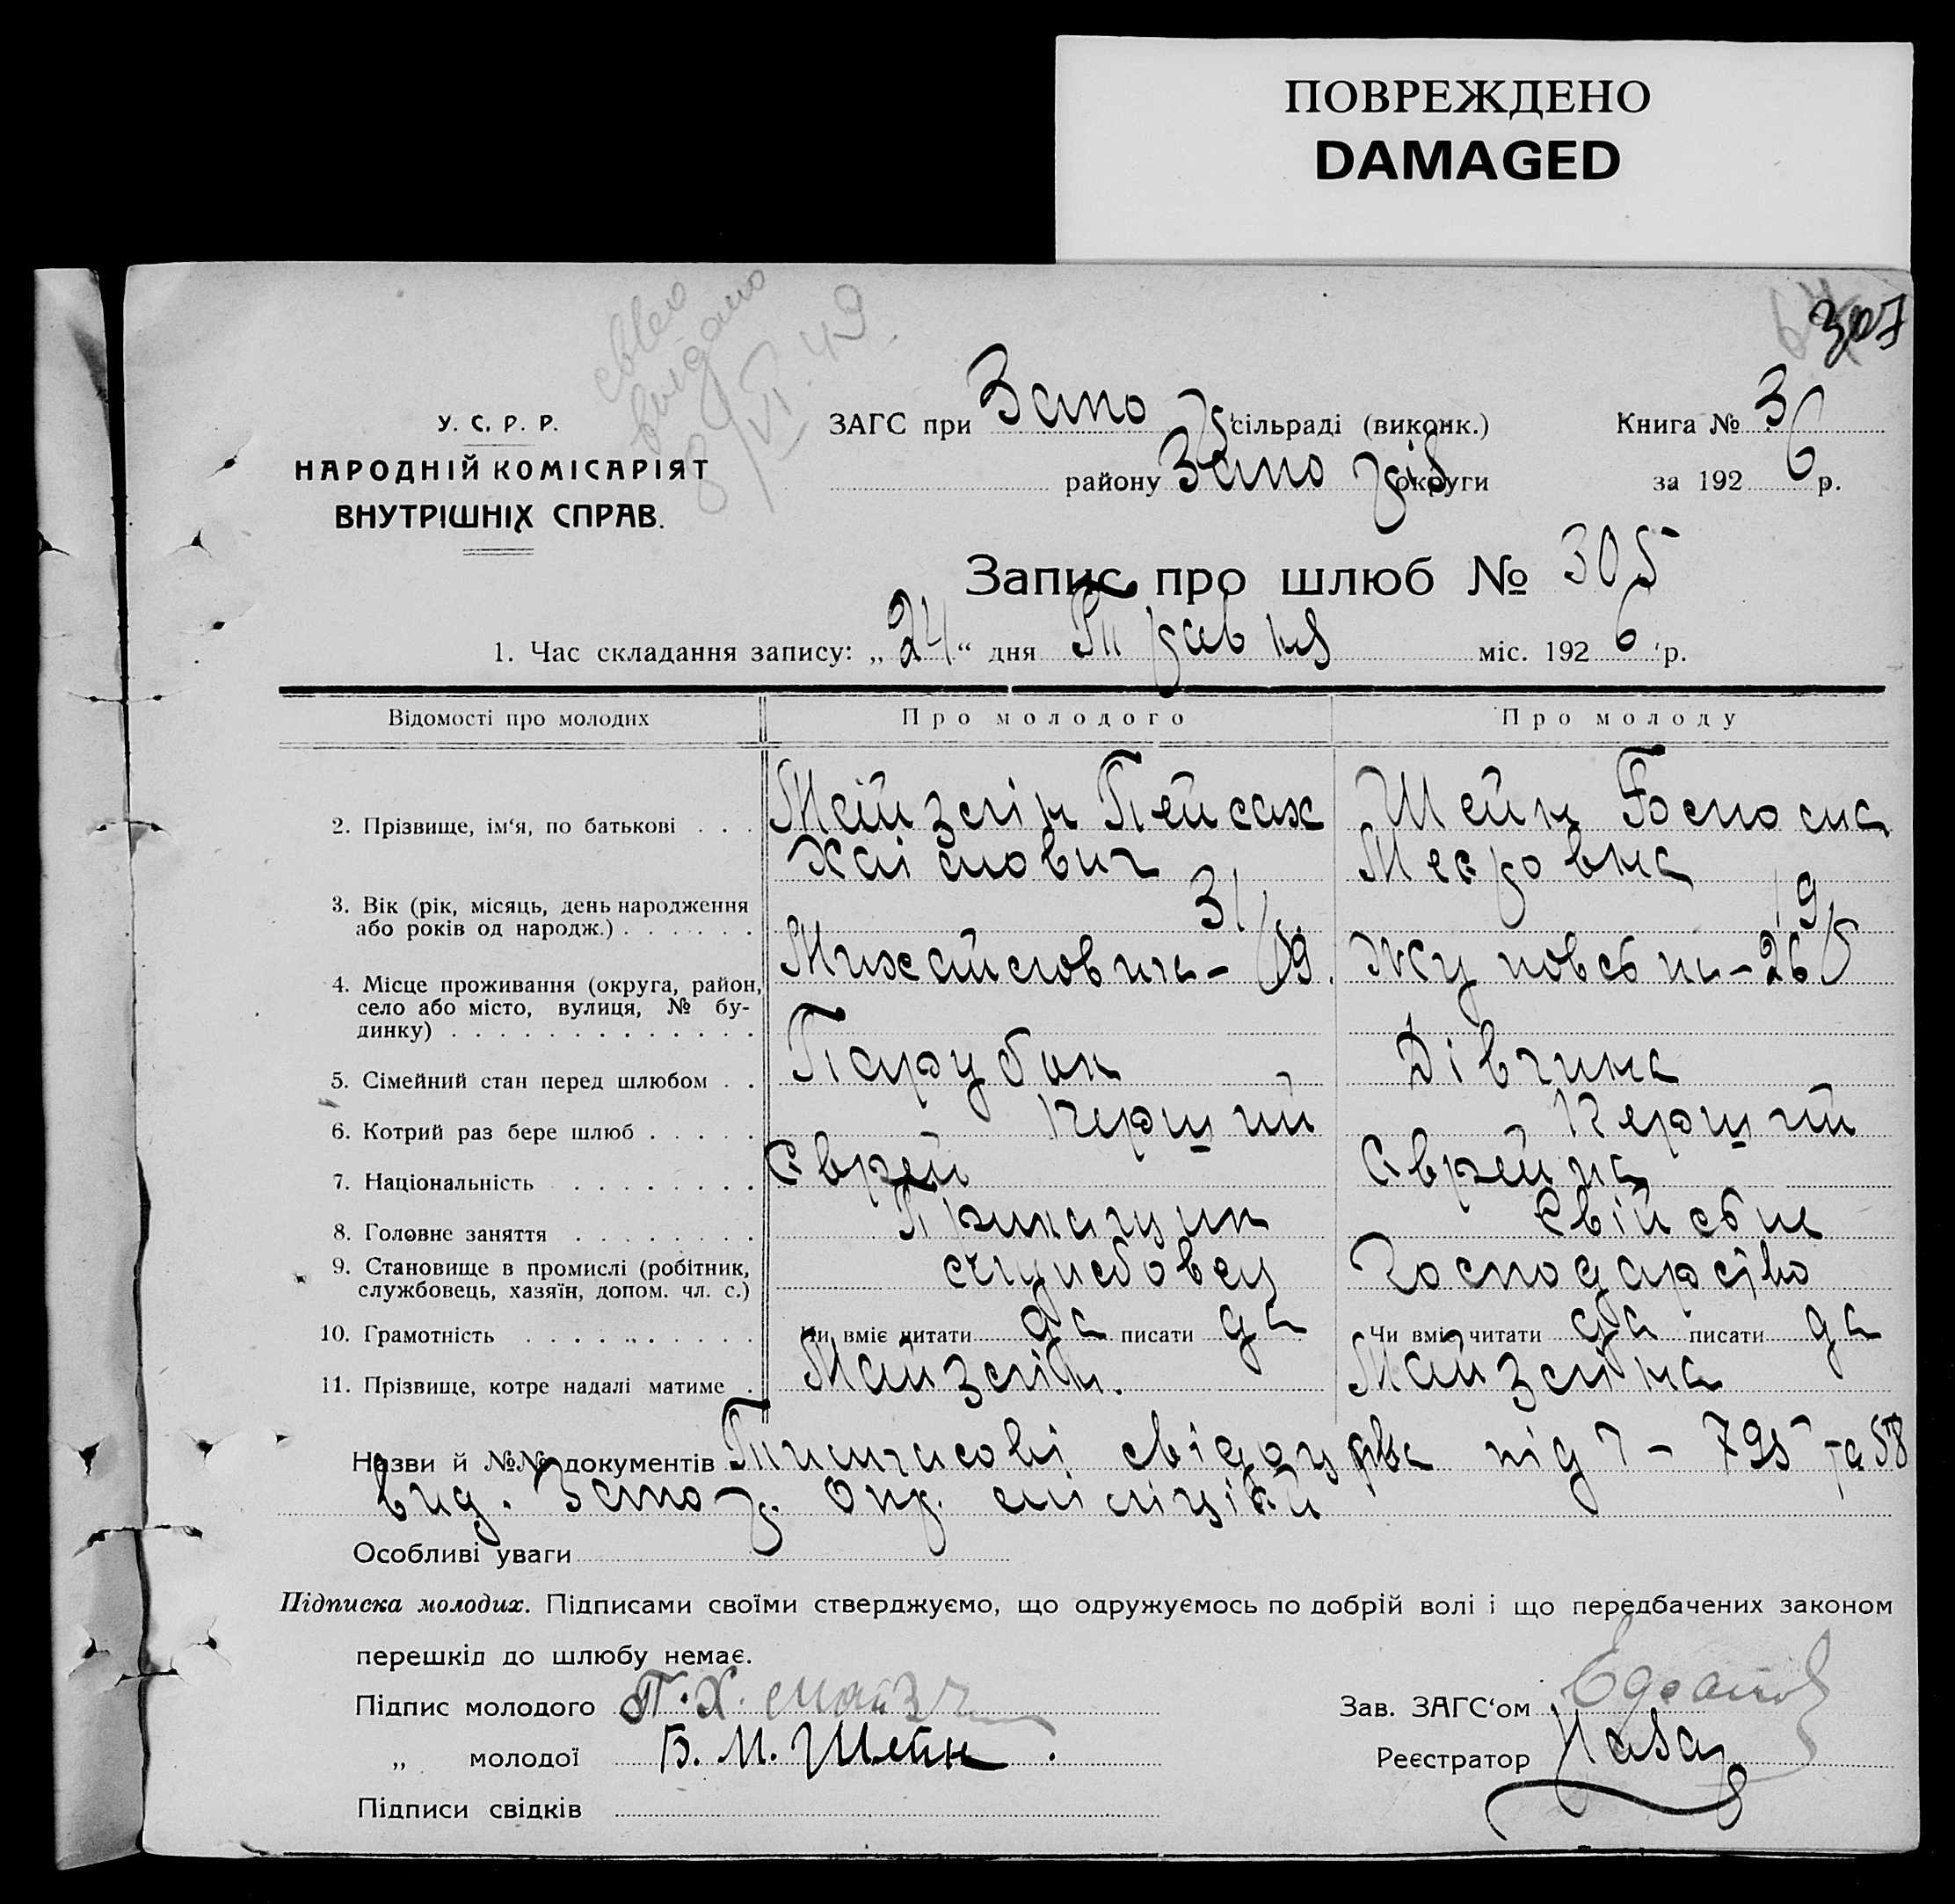 ПОВРЕЖДЕНО
DAMAGED
307
свво
видано
8/VI-49.
У. С. Р. Р.
НАРОДНІЙ КОМІСАРІЯТ
ВНУТРІШНІХ СПРАВ.
ЗАГС при Запор сільраді (виконк.)
району Запоріз округи
Книга № 3
за 1926 р.
Запис про шлюб № 305
1. Час складання запису: „24“ дня Травня міс. 1926 р.
Відомості про молодих Про молодого Про молоду
2. Прізвище, ім‘я, по батькові . . . Майзлін Пейсах Шейн
Хаімович Меєровна
3. Вік (рік, місяць, день народження
або років од народж.) . . . . . . 31 19
4. Місце проживання (округа, район,
село або місто, вулиця, № бу-
динку) . . . . . . . . . . . . . Михайловка- Жуковська-26
5. Сімейний стан перед шлюбом . . Парубок Дівчина
6. Котрий раз бере шлюб . . . . . Перший Перший
7. Національність . . . . . . . . Єврей Єврейка
8. Головне заняття . . . . . . . . Прикащик Свійське
9. Становище в промислі (робітник,
службовець, хазяїн, допом. чл. с.) службовец Господарство
10. Грамотність . . . . . . . . . . Чи вміє читати да писати да Чи вміє читати да писати да
11. Прізвище, котре надалі матиме . Майзлін. Майзліна
Назви й №№ документів Тимчасові свідоцтва під ч - 795 та 58
вид. Запор. Окр. міліцією
Особливі уваги
Підписка молодих. Підписами своїми стверджуємо, що одружуємось по добрій волі і що передбачених законом
перешкід до шлюбу немає.
Підпис молодого П.Х. Майзл
„ молодої Б. М. Шейн.
Підписи свідків
Зав. ЗАГС‘ом
Реєстратор